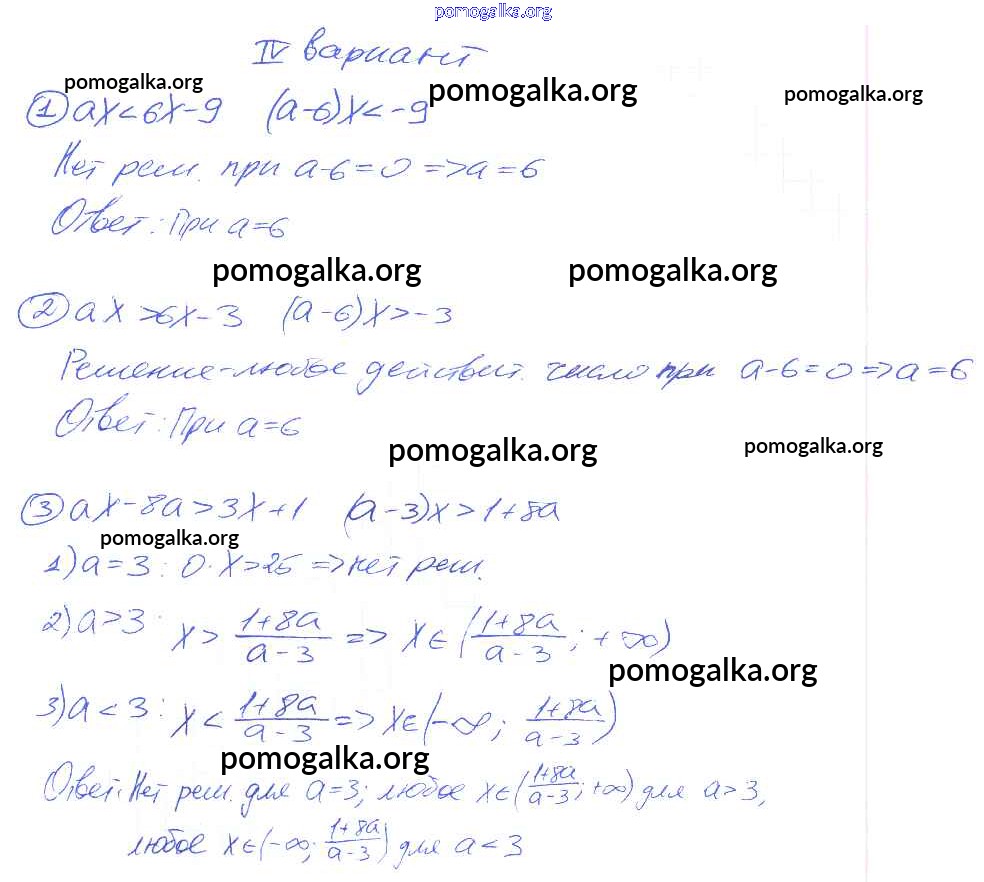 pomogalka.org
IV вариант
pomogalka.org pomogalka.org pomogalka.org
① ax<6x-9 (a-6)x<-9
Нет реш. при a-6=0 => a=6
Ответ: При a=6
pomogalka.org pomogalka.org
② ax>6x-3 (a-6)x>-3
Решение-любое действит. число при a-6=0 => a=6
Ответ: При a=6
pomogalka.org pomogalka.org
③ ax-8a>3x+1 (a-3)x>1+8a
pomogalka.org
1) a=3: 0·x>25 => нет реш.
2) a>3: x > (1+8a)/(a-3) => x∈((1+8a)/(a-3); +∞)
pomogalka.org
3) a<3: x < (1+8a)/(a-3) => x∈(-∞; (1+8a)/(a-3))
pomogalka.org
Ответ: Нет реш. для a=3; любое x∈((1+8a)/(a-3); +∞) для a>3,
любое x∈(-∞; (1+8a)/(a-3)) для a<3